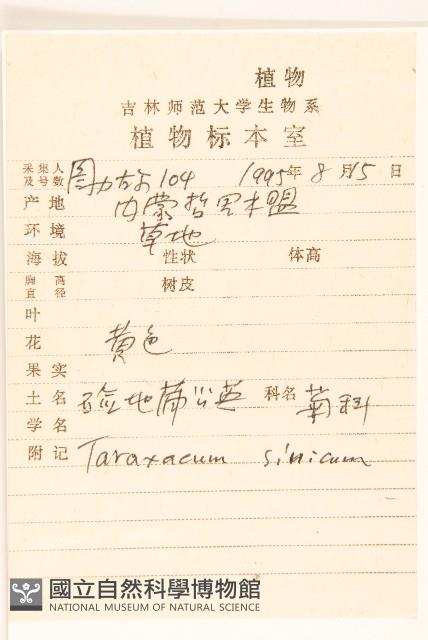 植物
吉林师范大学生物系
植物标本室
采集人及号数 图力古尔 104 1995年 8月15日
产地 内蒙哲里木盟
环境 草地
海拔 性状 体高
胸高直径 树皮
叶
花 黄色
果实
土名 碱地蒲公英 科名 菊科
学名
附记 Taraxacum sinicum
國立自然科學博物館
NATIONAL MUSEUM OF NATURAL SCIENCE